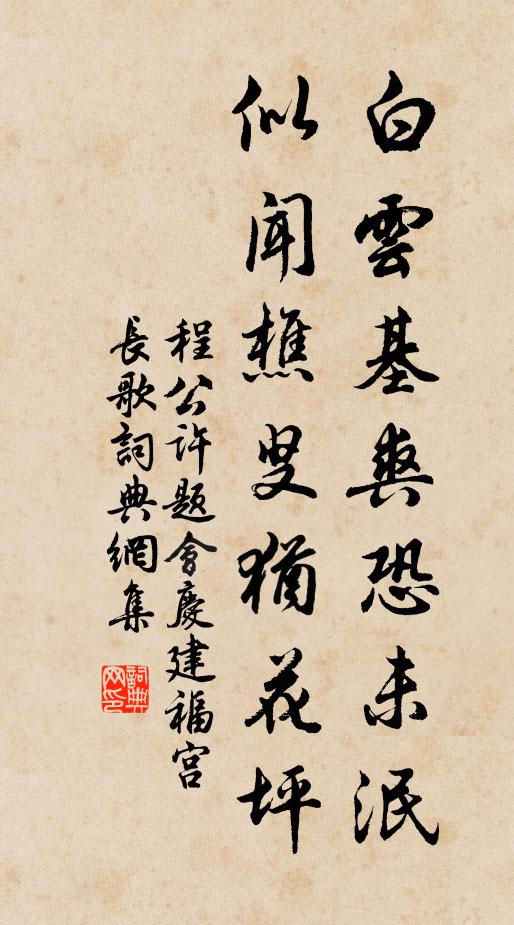 白雲基爽恐未泯
似聞樵叟猶花坪
程公許題會慶建福宮
長歌詞典網集
詞典網印